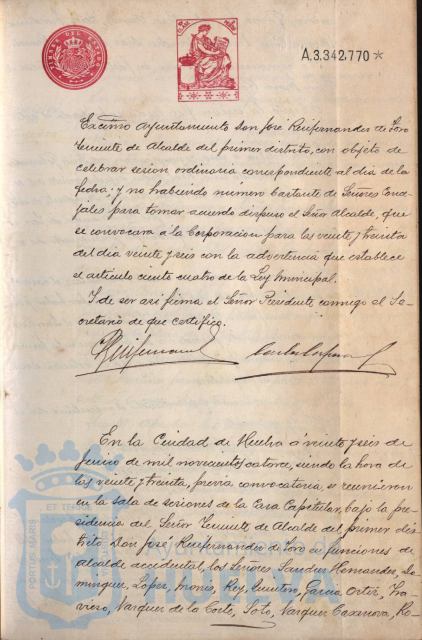 TIMBRE DEL ESTADO
A.3.342,770 *
Excmo Ayuntamiento Don José Ruifernandez de Toro
Teniente de Alcalde del primer distrito, con objeto de
celebrar sesion ordinaria correspondiente al dia de la
fecha; y no habiendo número bastante de Señores Conce-
jales para tomar acuerdo dispuso el Señor Alcalde, que
se convocara á la Corporacion para las veinte y treinta
del dia veinte y seis con la advertencia que establece
el articulo ciento cuatro de la Ley Municipal.
Y de ser asi firma el Señor Presidente conmigo el Se-
cretario de que certifico.
En la Ciudad de Huelva á veinte y seis de
Junio de mil novecientos catorce, siendo la hora de
las veinte y treinta, previa convocatoria se reunieron
en la Sala de sesiones de la Casa Capitular, bajo la pre-
sidencia del Señor Teniente de Alcalde del primer dis-
trito Don José Ruifernandez de Toro en funciones de
alcalde accidental, los Señores Sanchez Hernandez, Do-
minguez, Lopez, Rey, Garcia Ortiz,
Vazquez de la Corte, Soto, Vazquez Casanova, Ro-
PORTUS MARIS
ET TERRAE
Ayuntamiento de
HUELVA